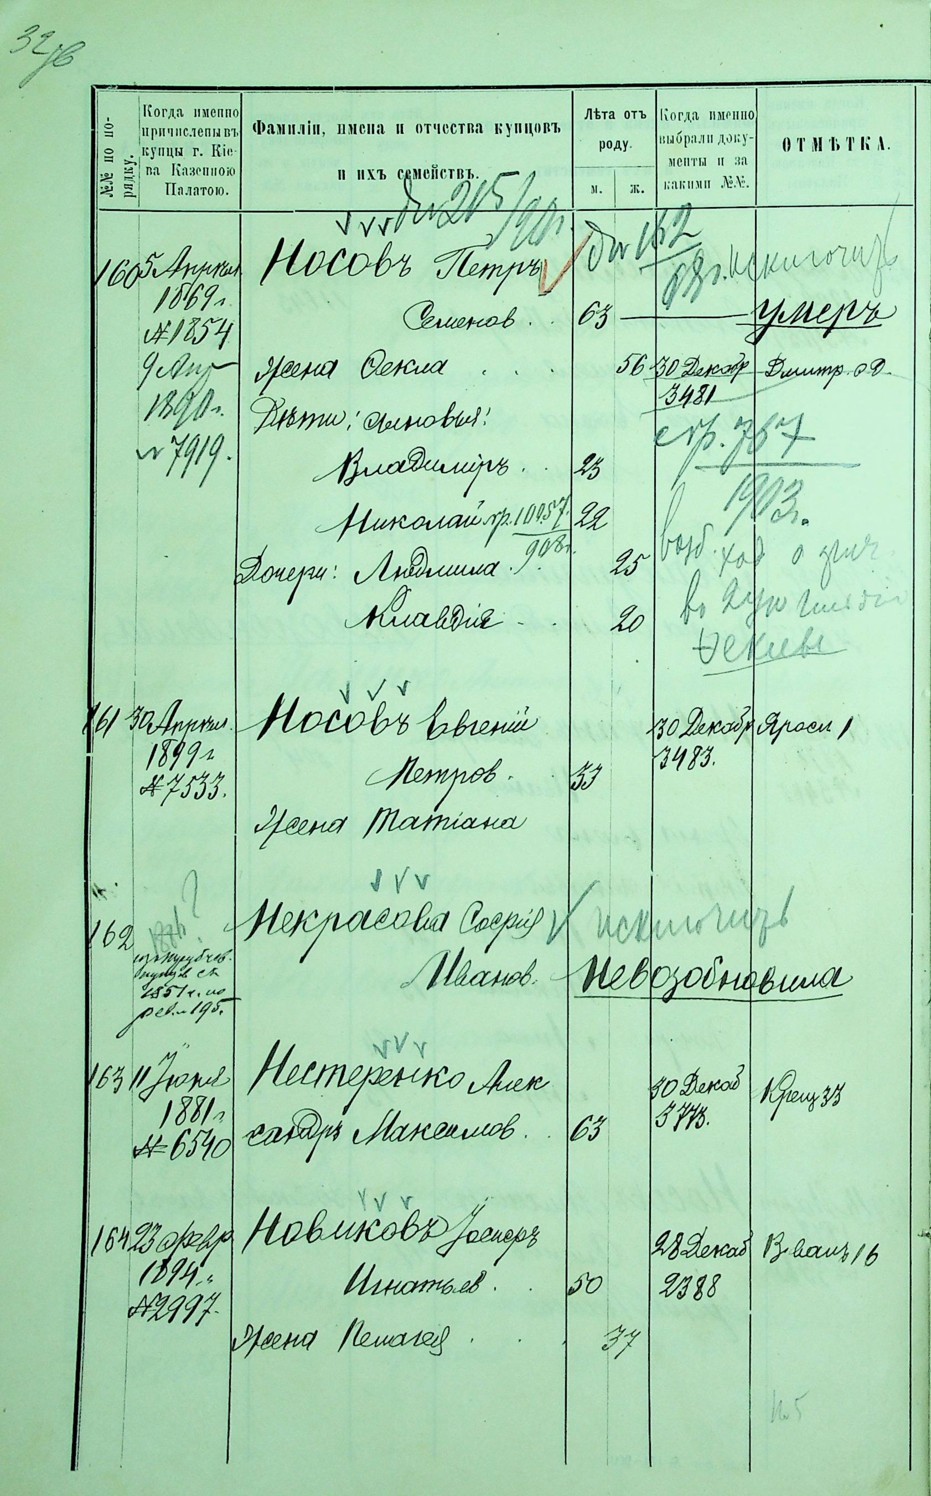 №№ по по-
рядку.
Когда именно
причислены въ
купцы г. Кіе-
ва Казенною
Палатою.
Фамиліи, имена и отчества купцовъ
и ихъ семействъ.
Лѣта отъ
роду.
м. ж.
Когда именно
выбрали доку-
менты и за
какими №№.
ОТМѢТКА.
160 5 Апрѣля
1869 г.
№ 1854
9 Апр
1890 г.
№ 7919.
Носовъ Петръ
Семенов. 63
исключить
умеръ
Жена Фекла 56 30 Декабр
3481
Дѣти: сыновья:
стр. 767
1903 г.
Владиміръ 23
Николай 10957 22
908 г.
Дочери: Людмила 25
Клавдія 20
161 30 Апрѣл.
1899 г.
№ 7533.
Носовъ Евгеній
Петров. 33
30 Декабр
3483.
Яросл 1
Жена Татіана
162
Некрасова Софія
исключить
Иванов. Невозобновила
163 11 Іюня
1881 г.
№ 6540
Нестеренко Алек
сандръ Максимов. 63
30 Декаб
3773.
Крещ 33
164 23 февр
1894 г.
№ 2997.
Новиковъ
Игнатьев. 50
28 Декаб
2388
В Вал 16
Жена Пелагея 37